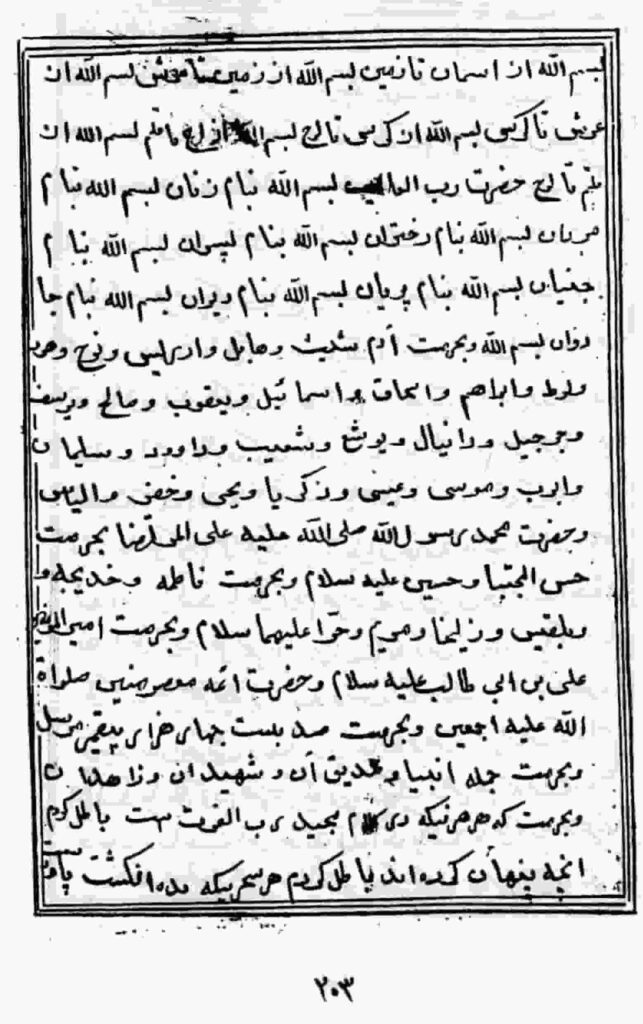 بسم الله از اسمان تا زمین بسم الله از زمین تا عرش بسم الله از
عرش تا کرسی بسم الله از کرسی تا لوح بسم الله از لوح تا قلم بسم الله از
قلم تا لوح حضرت رب العالمین بسم الله بنام زنان بسم الله بنام
مردان بسم الله بنام دختران بسم الله بنام پسران بسم الله بنام
جنیان بسم الله بنام پریان بسم الله بنام دیوان بسم الله بنام جا
دوان بسم الله وبحرمت آدم شیث وهابل وادریس ونوح وهود
ولوط وابراهم واسحاق واسمائیل ویعقوب وصالح ویوسف
وجرجیل ودانیال ویوشع وشعیب وداوود وسلیمان
وایوب وموسی وعیسی وزکریا ویحیی وخضر والیاس
وحضرت محمد رسول الله صلی الله علیه بحرمت
حسن المجتبا وحسین علیه سلام وبحرمت فاطمه وخدیجه و
وبلقیس وزلیخا ومریم وحوّا علیهما سلام وبحرمت
علی بن ابی طالب علیه سلام وحضرت ائمه معصومین صلواة
الله علیه اجمعین وبحرمت صد بیست چهار هزار پیغمبر مرسل
وبحرمت جمله انبیا وصدیق آن وشهیدان وزاهدان
وبحرمت که هر هرنیکه در کلام مجید رب العزت هست باطل کردم
انچه پنهان کرده اند باطل کردم هر سحریکه ده انکشت
۲۰۳